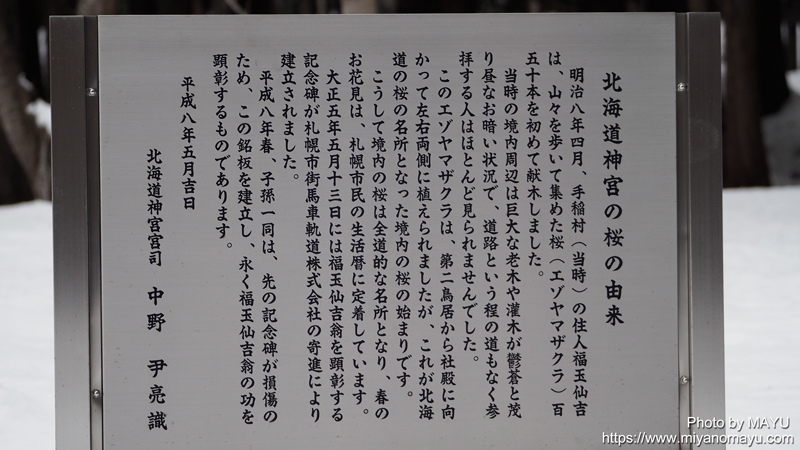 北海道神宮の桜の由来
明治八年四月、手稲村（当時）の住人福玉仙吉
は、山々を歩いて集めた桜（エゾヤマザクラ）百
五十本を初めて献木しました。
当時の境内周辺は巨大な老木や灌木が鬱蒼と茂
り昼なお暗い状況で、道路という程の道もなく参
拝する人はほとんど見られませんでした。
このエゾヤマザクラは、第二鳥居から社殿に向
かって左右両側に植えられましたが、これが北海
道の桜の名所となった境内の桜の始まりです。
こうして境内の桜は全道的な名所となり、春の
お花見は、札幌市民の生活暦に定着しています。
大正五年五月十三日には福玉仙吉翁を顕彰する
記念碑が札幌市街馬車軌道株式会社の寄進により
建立されました。
平成八年春、子孫一同は、先の記念碑が損傷の
ため、この銘板を建立し、永く福玉仙吉翁の功を
顕彰するものであります。
平成八年五月吉日
北海道神宮宮司 中野 尹亮識
Photo by MAYU
https://www.miyanomayu.com/